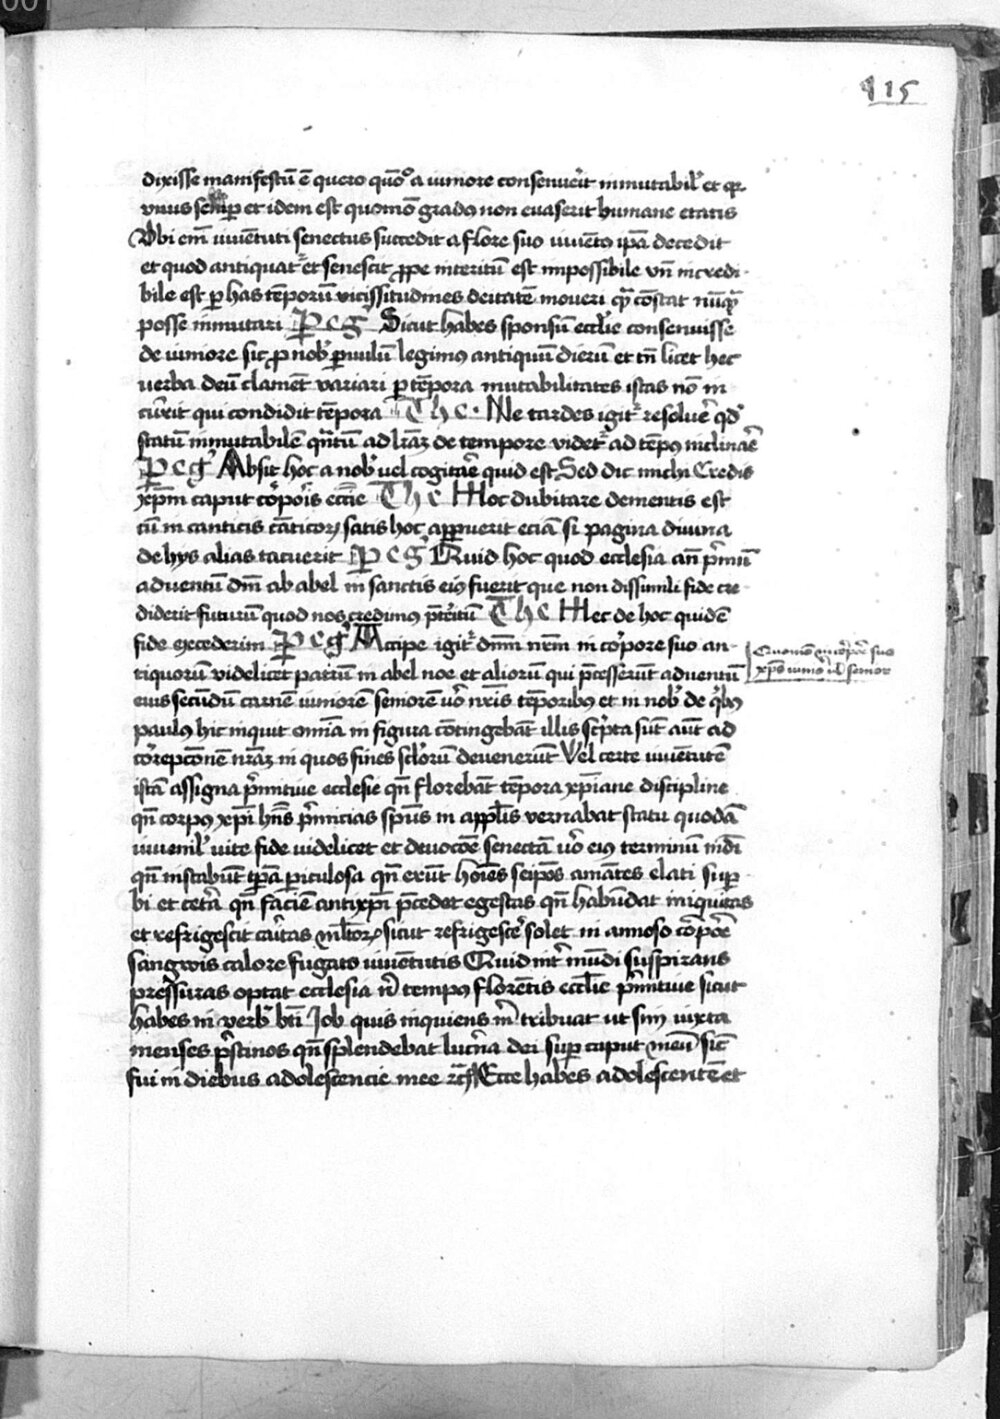 115
dixisse manifestū ē quero quō a iuniore consenuerit inmutabil' et qr
unus semp et idem est quomō gradus non euaserit humane etatis
Ubi em̄ iuuētuti senectus succedit a flore suo iuuētus ipā decedit
et quod antiquat' et senescit ꝓpe interitū est impossibile vn̄ incredi-
bile est ꝑ has tēporū vicissitudines deitatē moueri qā cōstat nūꝗ
posse inmutari Peg' Sicut habes sponsū eccl'ie consenuisse
de iuniore sic ꝓ nob' ꝑuulū legimus antiquū dierū et tn̄ licet hec
uerba deū clament variari ꝑ tēpora mutabilitates istas nō in
curit qui condidit tēpora The. Ne tardes igit' resoluē qd'
statū inmutabilē qntū ad lrāꝫ de tempore videt' ad tēpus inclinaē
Peg' Absit hoc a nob' uel cogitaē quid est Sed dic michi Credis
xp̄m caput corpōis eccīe The Hoc dubitare dementis est
cū in canticis cāticoꝝ satis hoc appruerit eciā si pagina diuina
de hys alias tacuerit Peg' Quid hoc quod ecclesia an̄ p'mū
aduentū dn̄i ab abel in sanctis eius fuerit que non dissimili fide cre-
diderit futurū quod nos credimus pͭteritū The Hec de hoc quidē
fide excederim Peg' Accipe igit' dn̄m nrm in corpore suo an-
tiquorū videlicet patrū in abel noe et aliorū qui pͭcesserūt aduentū
eius secundū carnē iuniorē seniorē uō nris tēporibus et in nob' de qbus
paulus hic inquit omīa in figura cōtingebāt illis scpta sūt aūt ad
corepcōnē nrāꝫ in quos fines sclorū deuenerūt Vel certe iuuētutē
istā assigna p'mitiue ecclesie qn̄ florebāt tēpora xp̄iane discipline
qn̄ corpus xp̄i hn̄s p'micias sp̄us in app̄lis vernabat statu quodā
iuuenil' uite fide uidelicet et deuocōē senectā uō eius terminū mdī
qn̄ instabūt tpā piculosa qn̄ erūt hoīes seipos amātes elati sup-
bi et cetā qn̄ faciē antixp̄i pͭcedet egestas qn̄ habūdat iniquitas
et refrigescit caritas mltoꝝ sicut refrigesce solet in annoso corpoē
sangwis calore fugato iuuētutis Quid int' mūdi suspirans
pressuras optat ecclesia n' tempus florētis eccl'ie p'mitiue sicut
habes in verb' bt̄i Job quis inquiens m' tribuat ut sim iuxta
menses p'stinos qn̄ splendebat lucna dei sup caput meū sic
fui in diebus adolescencie mee rc̄ Ecce habes adolescentē et
Quomō in corpoē suo
xp̄us iunior vel senior